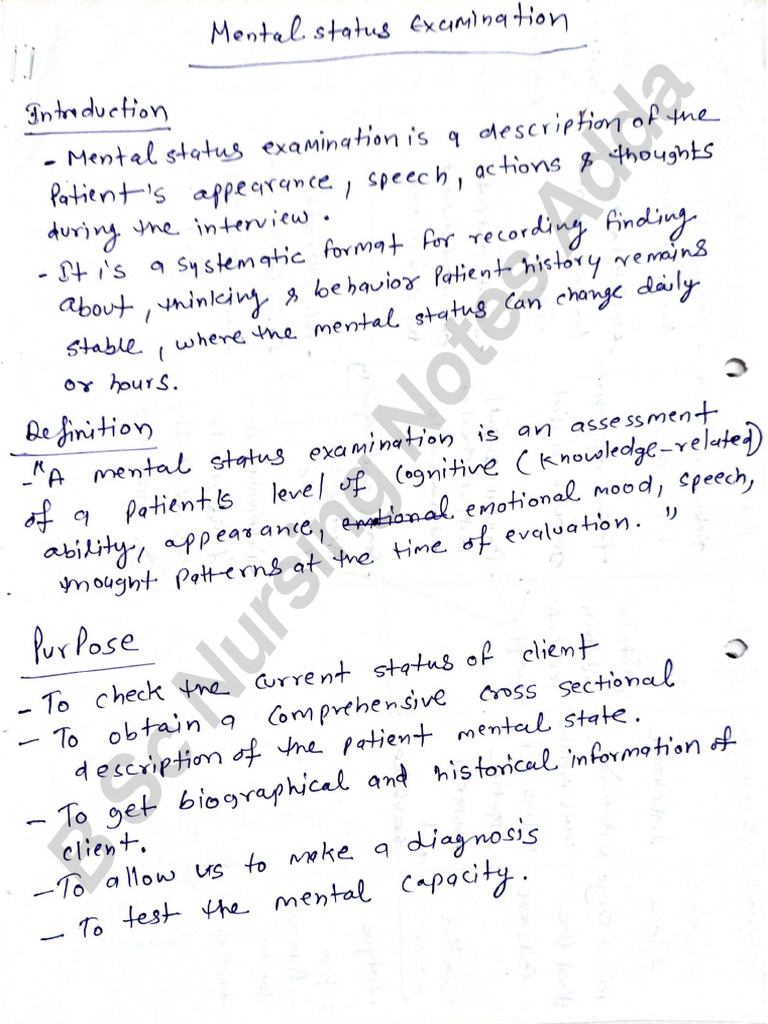 Mental status Examination
Introduction
- Mental status examination is a description of the
Patient's appearance, speech, actions & thoughts
during the interview.
- It is a systematic format for recording finding
about, thinking & behavior Patient history remains
stable, where the mental status can change daily
or hours.
Definition
- "A mental status examination is an assessment
of a patient's level of cognitive (knowledge-related)
ability, appearance, emotional emotional mood, speech,
thought patterns at the time of evaluation."
Purpose
- To check the current status of client
- To obtain a comprehensive cross sectional
description of the patient mental state.
- To get biographical and historical information of
client.
- To allow us to make a diagnosis
- To test the mental capacity.
B Sc Nursing Notes Adda